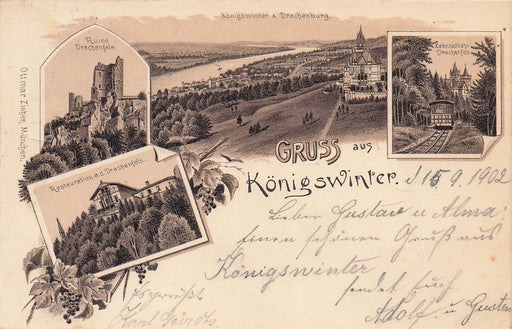 Königswinter u. Drachenburg.
Ruine
Drachenfels.
Zahnradbahn
Drachenfels
Ottmar Zieher, München.
Restauration a.d. Drachenfels.
GRUSS aus
Königswinter.
d 15 9. 1902
Lieber Gustav u Alma:
einen schönen Gruß aus
Königswinter
sendet Euch
Adolf u Gustav
Es grüßt
Karl